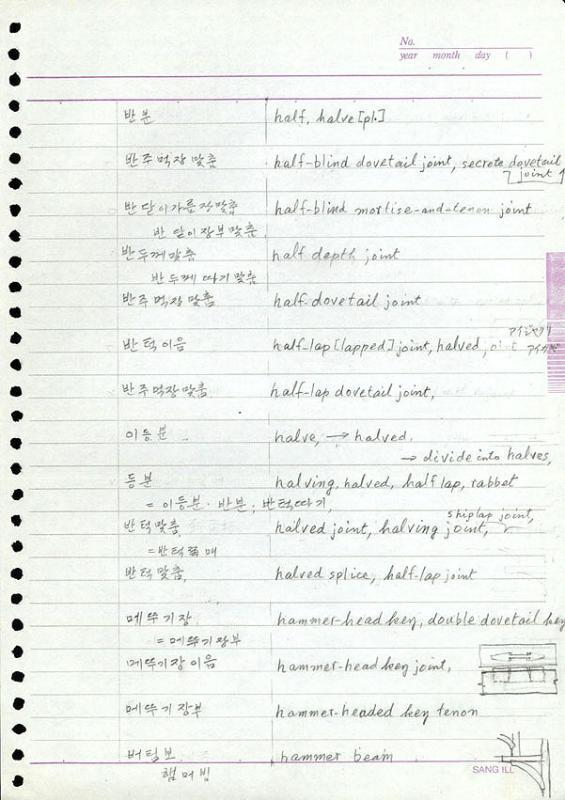 No.
year month day ( )
반분 half, halve [pl.]
반주먹장 맞춤 half-blind dovetail joint, secrete dovetail
joint
반닫이가름장맞춤 half-blind mortise-and-tenon joint
반닫이장부맞춤
반두께맞춤 half depth joint
반두께 따기맞춤
반주먹장 맞춤 half dovetail joint
반턱이음 half-lap [lapped] joint, halved joint
반주먹장 맞춤 half-lap dovetail joint,
이등분 halve, → halved.
→ divide into halves,
등분 halving, halved, half lap, rabbet
= 이등분 · 반분 · 반턱따기,
shiplap joint,
반턱맞춤, halved joint, halving joint,
반턱맞춤, halved splice, half-lap joint
메뚜기장 hammer-head key, double dovetail key
= 메뚜기장부
메뚜기장이음 hammer-head key joint,
메뚜기장부 hammer-headed key tenon
버팀보 hammer beam
햄머빔
SANG ILL